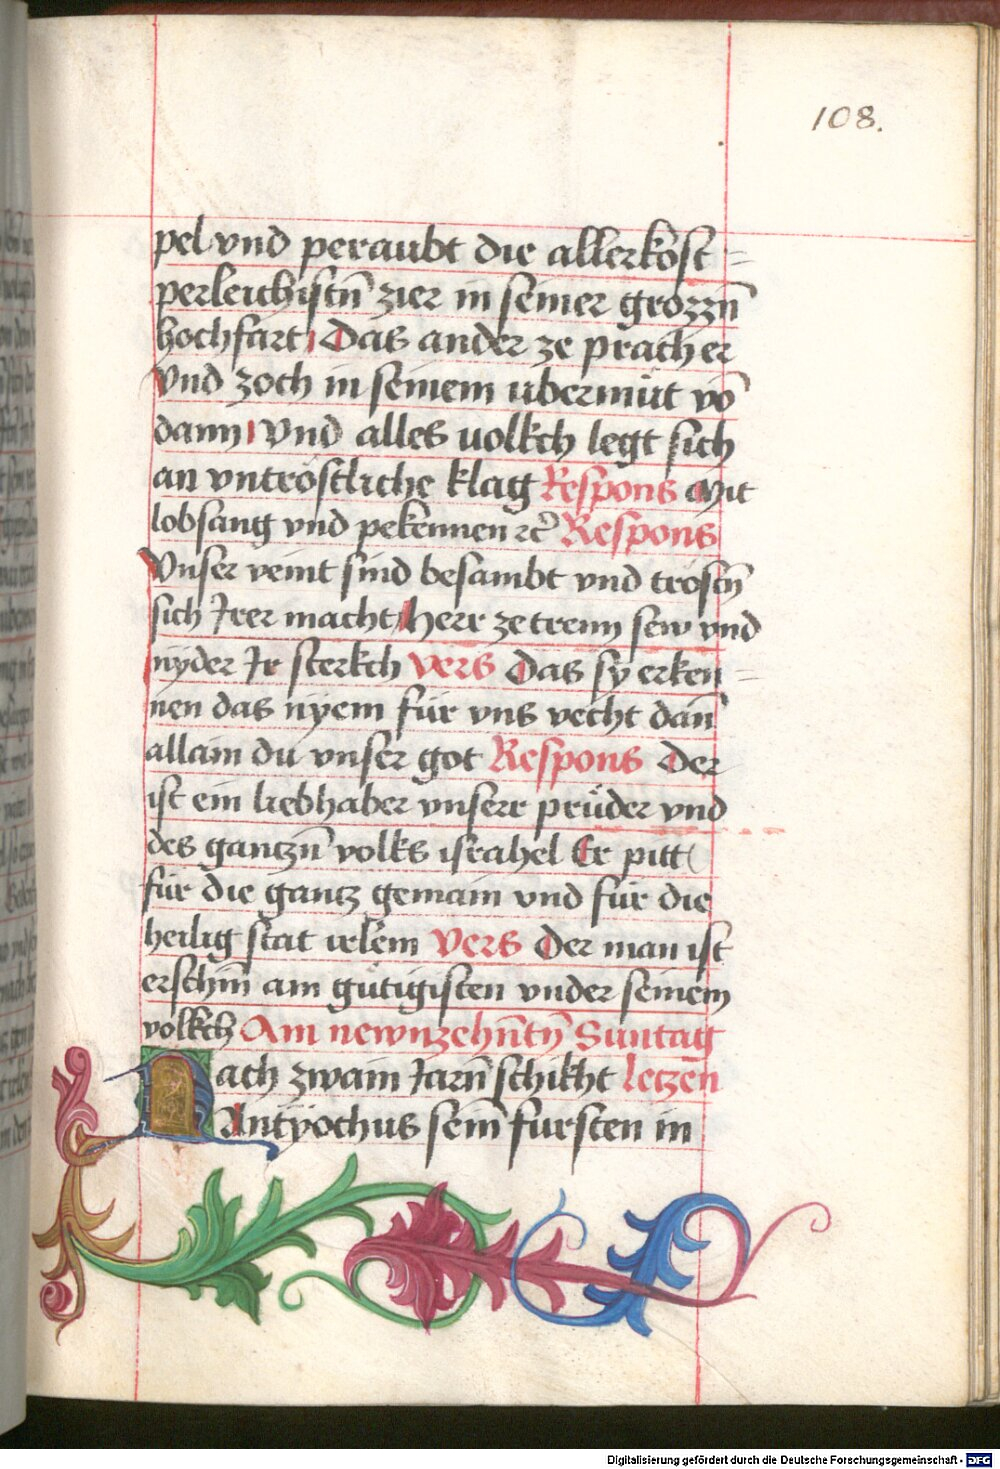 108.
pel vnd peraubt die allerkost=
perleichistn̄ zier in seiner grozzn̄
hochfart Das ander ze prach er
Vnd zoch in seinem ubermůt võ
dann Vnd alles uolkch legt sich
an vntröstliche klag Respons Mit
lobsang vnd pekennen ꝛc̄ Respons
Vnser veint sind besambt vnd tröstn̄
sich Irer macht Herr ze trenn sew vnd
nyder Ir sterkch Vers Das sy erken=
nen das nyem für vns vecht dan̄
allain du vnser got Respons Der
ist ein liebhaber vnserr prüder vnd
des gantzn̄ volks israhel Er pitt
für die gantz gemain vnd für die
heilig stat irlem Vers Der man ist
erschin̄ am gütigisten vnder seinem
volkch Am newnzehn̄tn̄ Suntag
Nach zwain Iarn̄ schikht letzen
Antyochus sein̄ fursten in
Digitalisierung gefördert durch die Deutsche Forschungsgemeinschaft - DFG